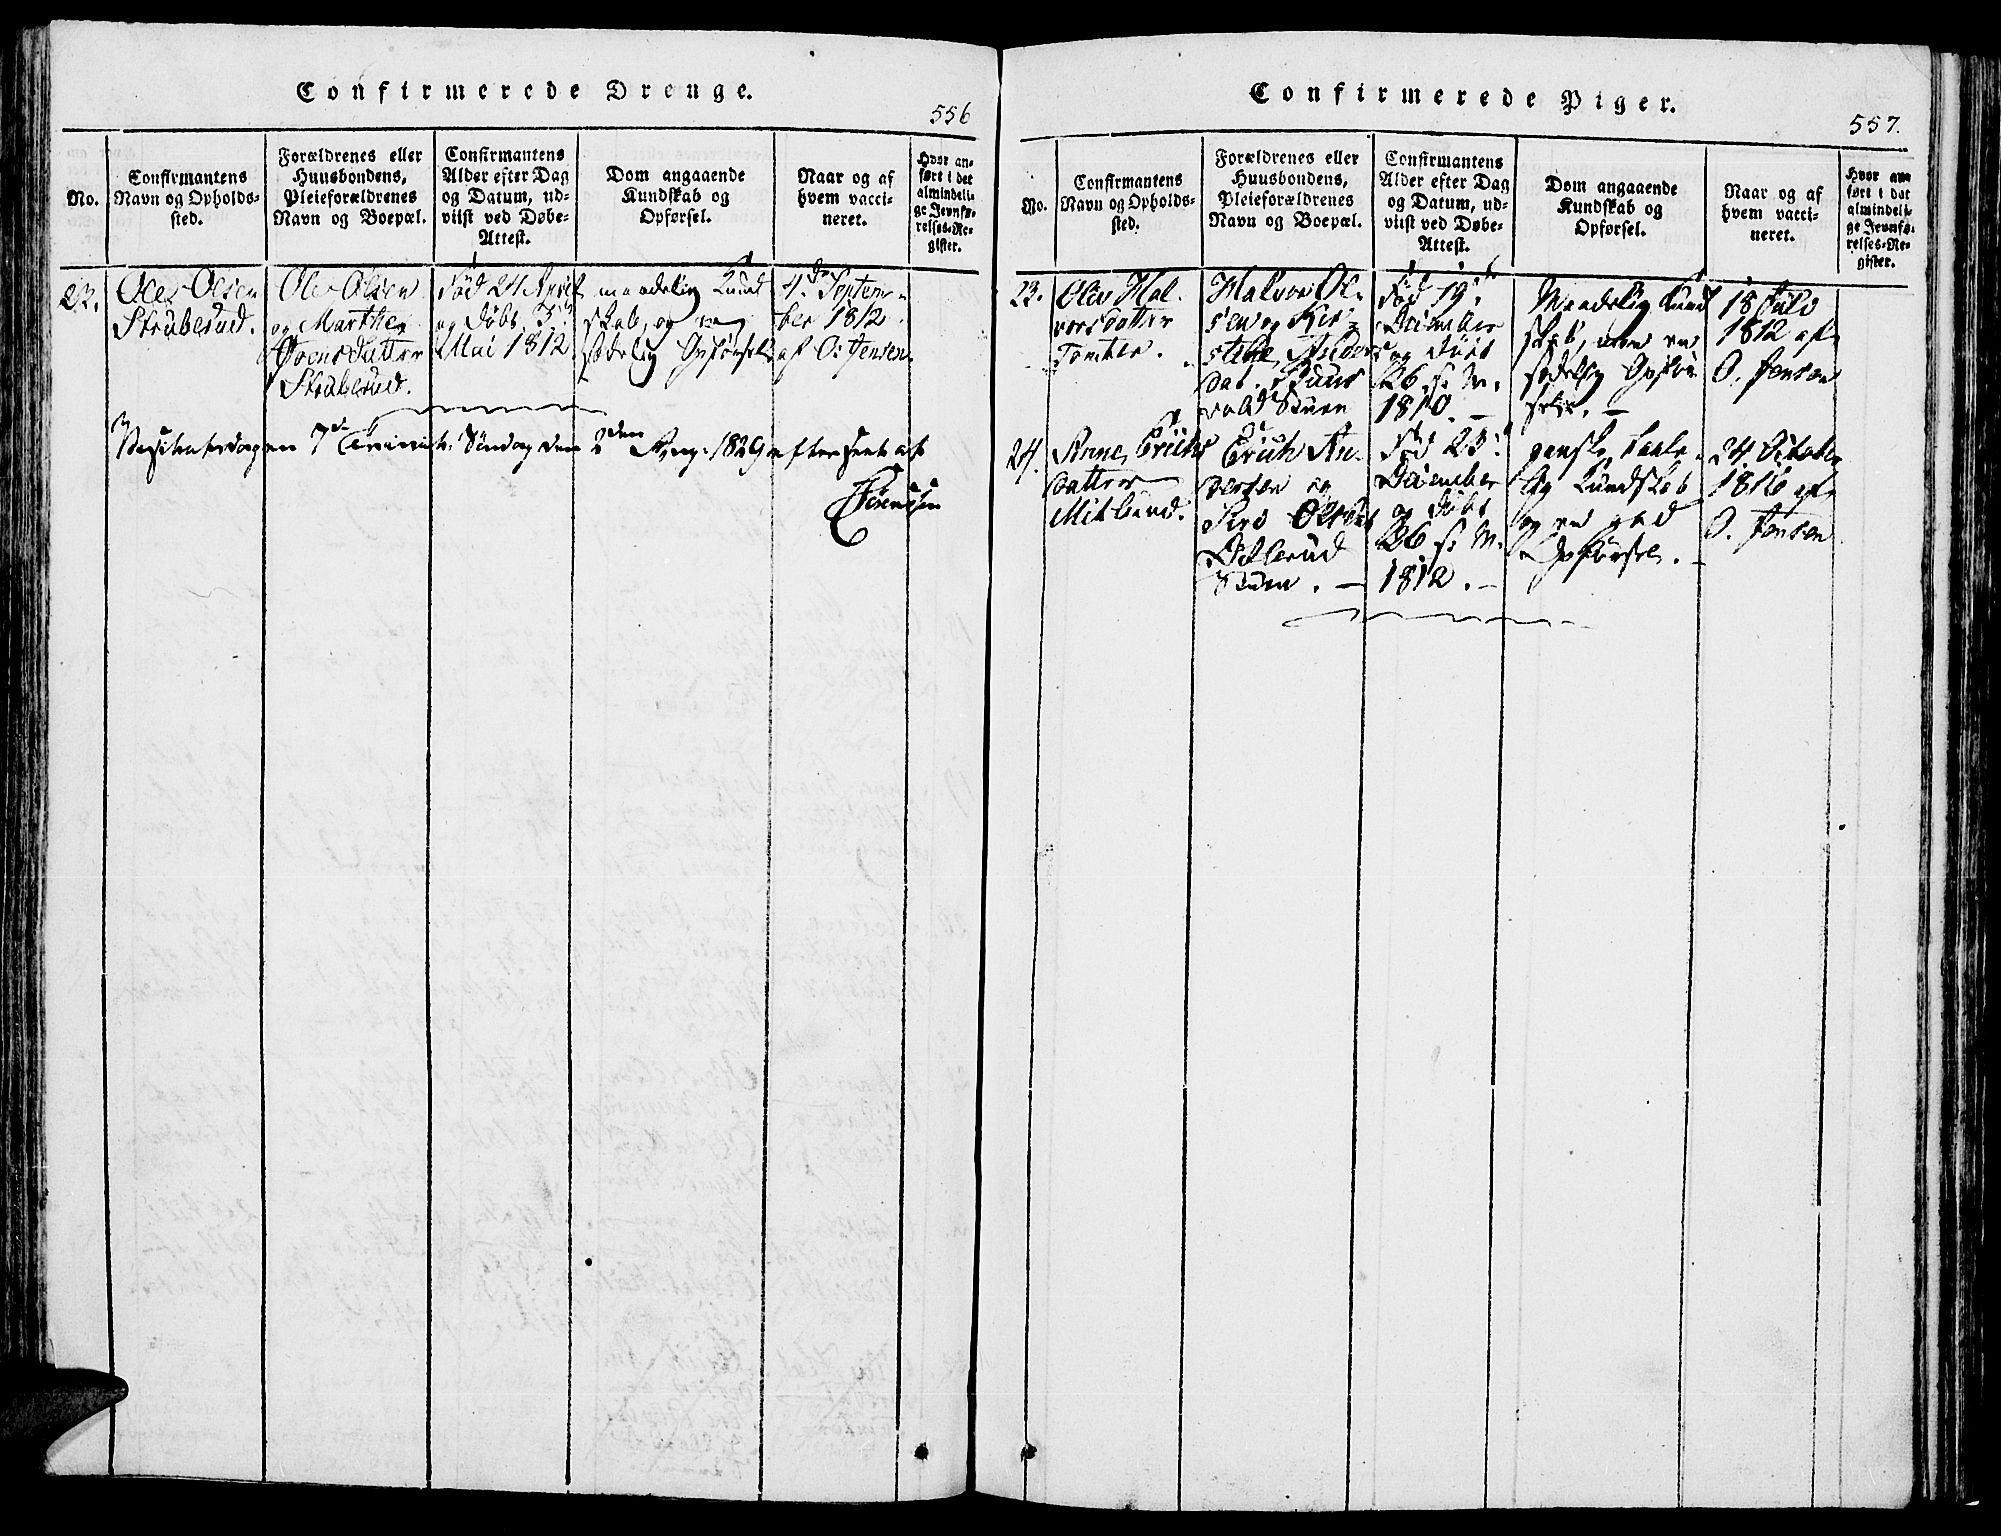 Confirmerede Drenge.
556
No.
Confirmantens
Navn og Opholds-
sted.
Forældrenes eller
Huusbondens,
Pleieforældrenes
Navn og Boepæl.
Confirmantens
Alder efter Dag
og Datum, ud-
viist ved Døbe-
Attest.
Dom angaaende
Kundskab og
Opførsel.
Naar og af
hvem vacci-
neret.
Hvor an-
ført i det
almindeli-
ge Jevnfø-
relses-Re-
gister.
Ole Olsen
Struberud.
Ole Olsen
og Marthe
Svensdatter
Struberud.
Fød 24 April
og døbt 3
Mai 1812
maadelig Kund
skab, og
sædelig Opførsel
4. Septem-
ber 1812
af O. Jensen
7de Trinit: Søndag den 2den Aug: 1829
Confirmerede Piger.
557.
No.
Confirmantens
Navn og Opholds-
sted.
Forældrenes eller
Huusbondens,
Pleieforældrenes
Navn og Boepæl.
Confirmantens
Alder efter Dag
og Datum, ud-
viist ved Døbe-
Attest.
Dom angaaende
Kundskab og
Opførsel.
Naar og af
hvem vacci-
neret.
Hvor an-
ført i det
almindeli-
ge Jevnfø-
relses-Re-
gister.
23.
Oliv Hal-
vorsdatter
Tomter.
Halvor Ol-
sen og Kir-
stine Anders
dat.
Fød 19
December
og døbt
26 s: M:
1810. —
Maadelig Kund
skab, men en
sædelig Opfør
sel. —
18 Juli
1812 af
O. Jensen
24.
Anne Erichs
datter
Mitlund.
Erich An-
dersen og
Siri Olsdat
Stuen. —
Fød 23
December
og døbt
26 s: M:
1812. —
ganske taale-
lig Kundskab
og en god
Opførsel. —
24 October
1816 af
O. Jensen